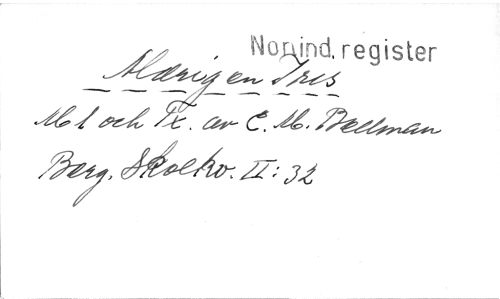 Nonind. register
Aldrig en Iris
Ml och Tx. av C. M. Bellman
Berg. Skolkv. II: 32